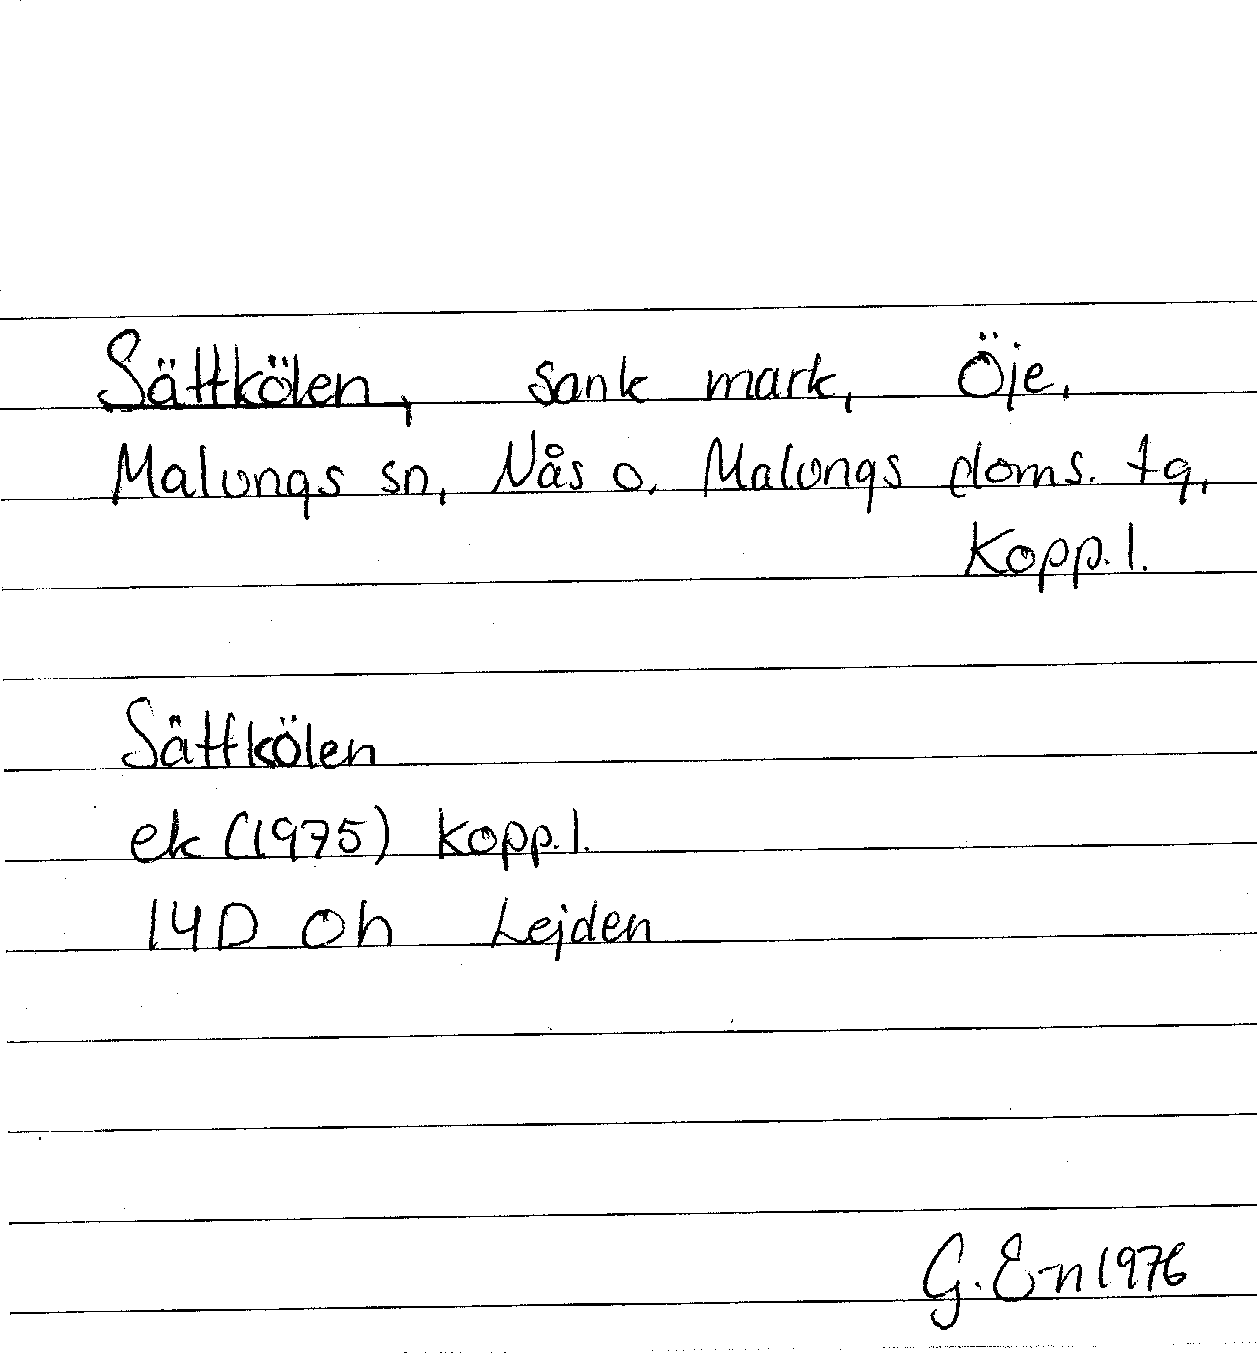 Sättkölen, sank mark, Öje,
Malungs sn, Nås o. Malungs doms. tg,
Kopp. l.
Sättkölen
ek (1975) Kopp. l.
14D 0h Lejden
G. E-n 1976